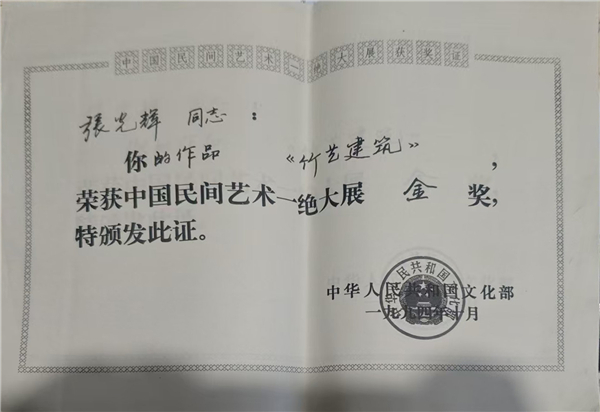 中国民间艺术一绝大展获奖证
張光辉 同志：
你的作品 《竹艺建筑》，
荣获中国民间艺术一绝大展 金 奖，
特颁发此证。
中华人民共和国文化部
一九九四年 月
中华人民共和国文化部